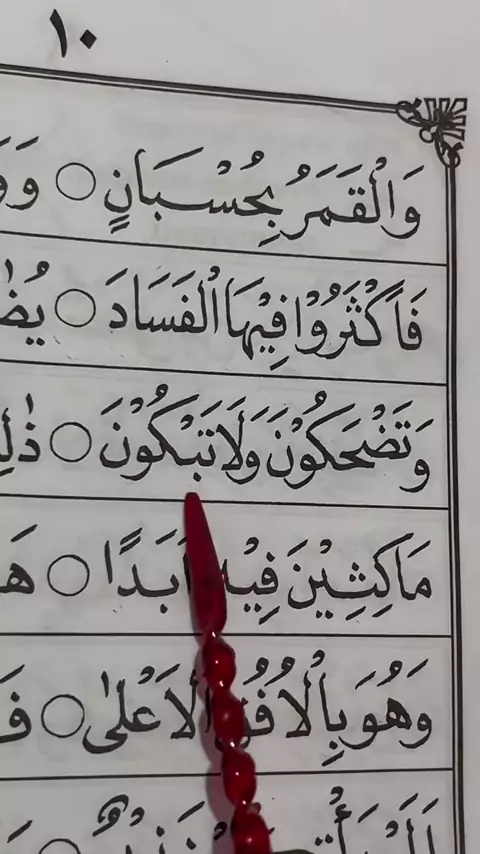 ١٠
وَالْقَمَرُ بِحُسْبَانٍ ○
فَاَكْثَرُوْا فِيْهَا الْفَسَادَ ○
وَتَضْحَكُوْنَ وَلَا تَبْكُوْنَ ○
مَاكِثِيْنَ فِيْهِ اَبَدًا ○
وَهُوَ بِالْاُفُقِ الْاَعْلٰى ○